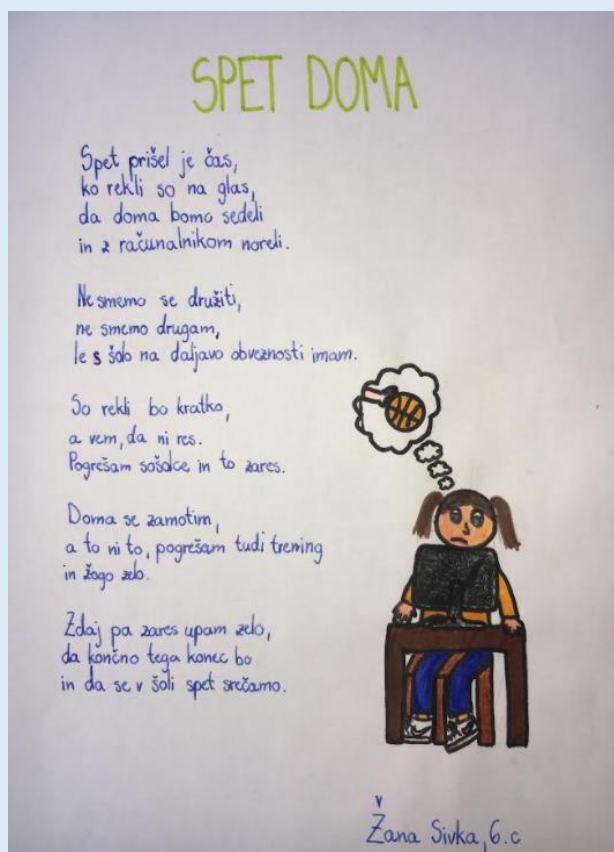 SPET DOMA
Spet prišel je čas,
ko rekli so na glas,
da doma bomo sedeli
in z računalnikom noreli.
Ne smemo se družiti,
ne smemo drugam,
le s šolo na daljavo obveznosti imam.
So rekli bo kratko,
a vem, da ni res.
Pogrešam sošolce in to zares.
Doma se zamotim,
a to ni to, pogrešam tudi trening
in žogo zelo.
Zdaj pa zares upam zelo,
da končno tega konec bo
in da se v šoli spet srečamo.
Žana Sivka, 6.c